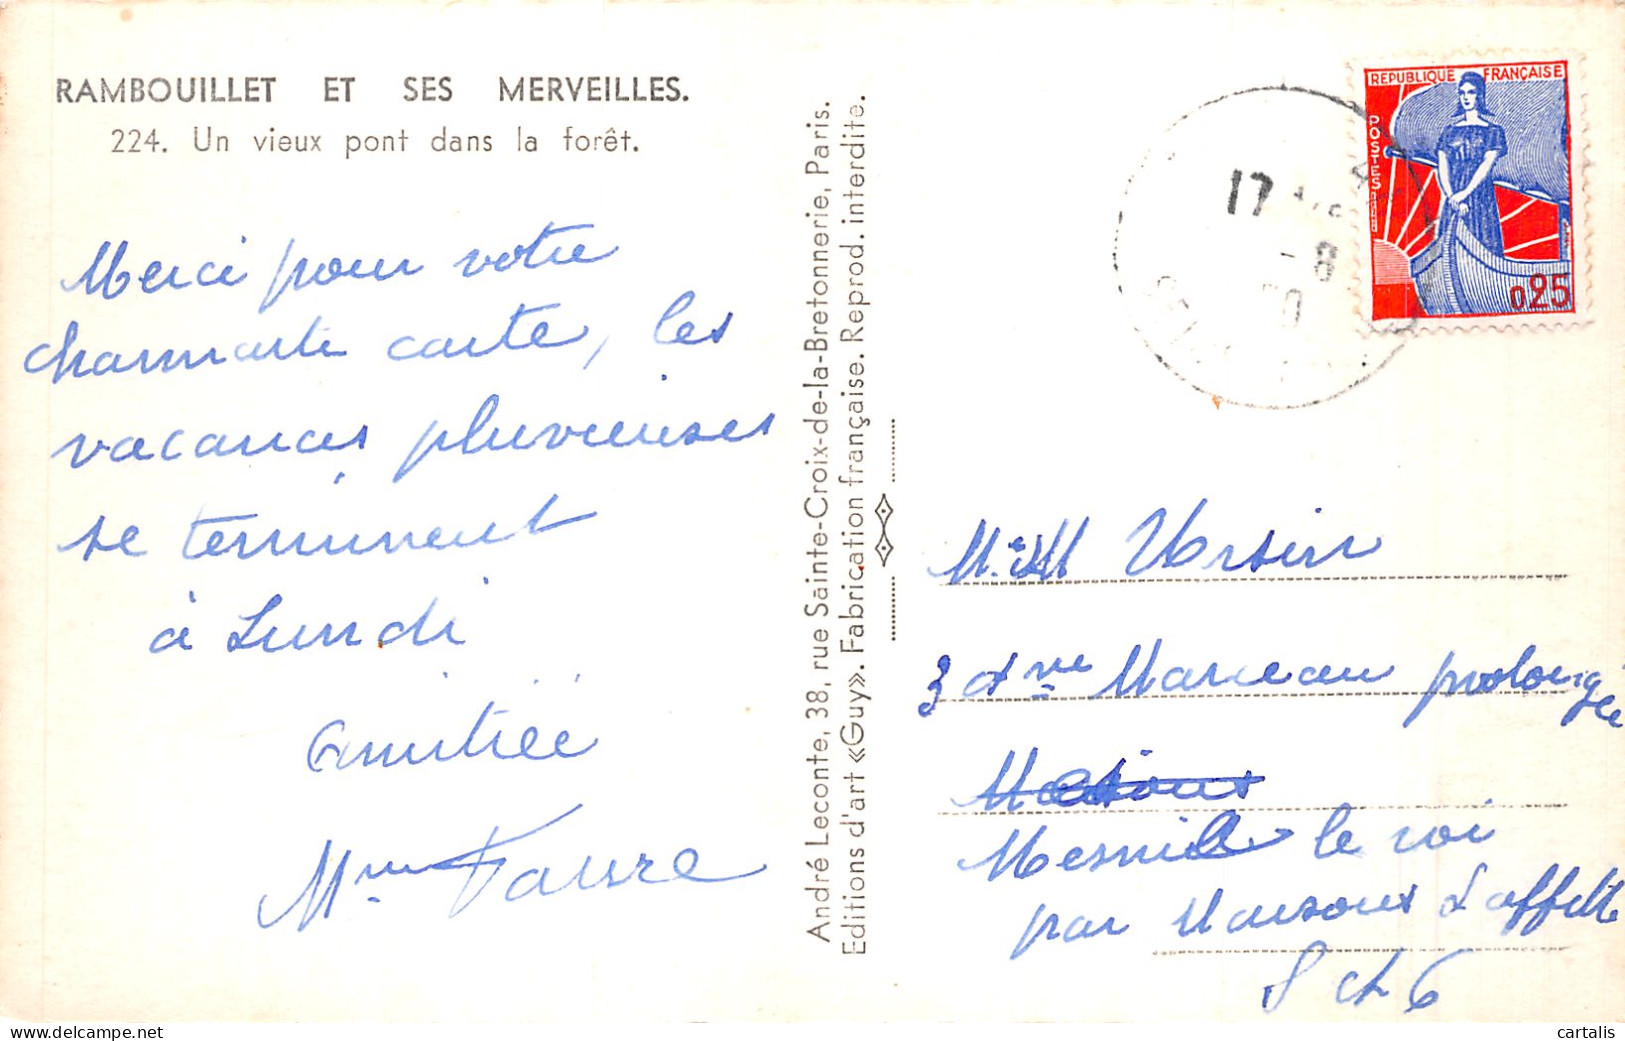 RAMBOUILLET ET SES MERVEILLES.
224. Un vieux pont dans la forêt.
Merci pour votre
charmante carte, les
vacances pluvieuses
se terminent
à Lundi
amitiée
Mme Faure
André Leconte, 38, rue Sainte-Croix-de-la-Bretonnerie, Paris.
Editions d'art «Guy». Fabrication française. Reprod. interdite.
REPUBLIQUE FRANÇAISE
POSTES
0,25
17
-8
M. et M Ursin
3 Ave Marceau prolongée
Maisons
Mesnil le roi
par Maisons Laffitte
S et O
cartalis